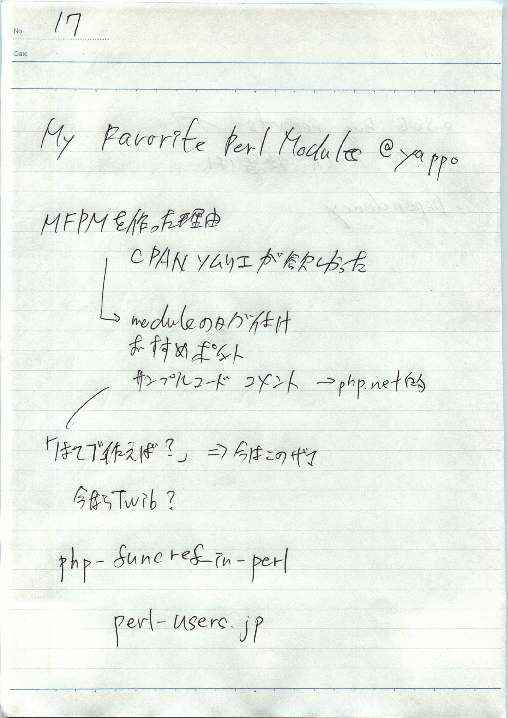 No 17
Date
My Favorite Perl Module @yappo
MFPMを作った理由
CPAN ソムリエが欲しかった
moduleのタグ付け
おすすめポイント
サンプルコード コメント →php.net的
「はてブで作えば?」 ⇒今はこのザマ
今ならTwib?
php-funcref-in-perl
perl-users.jp